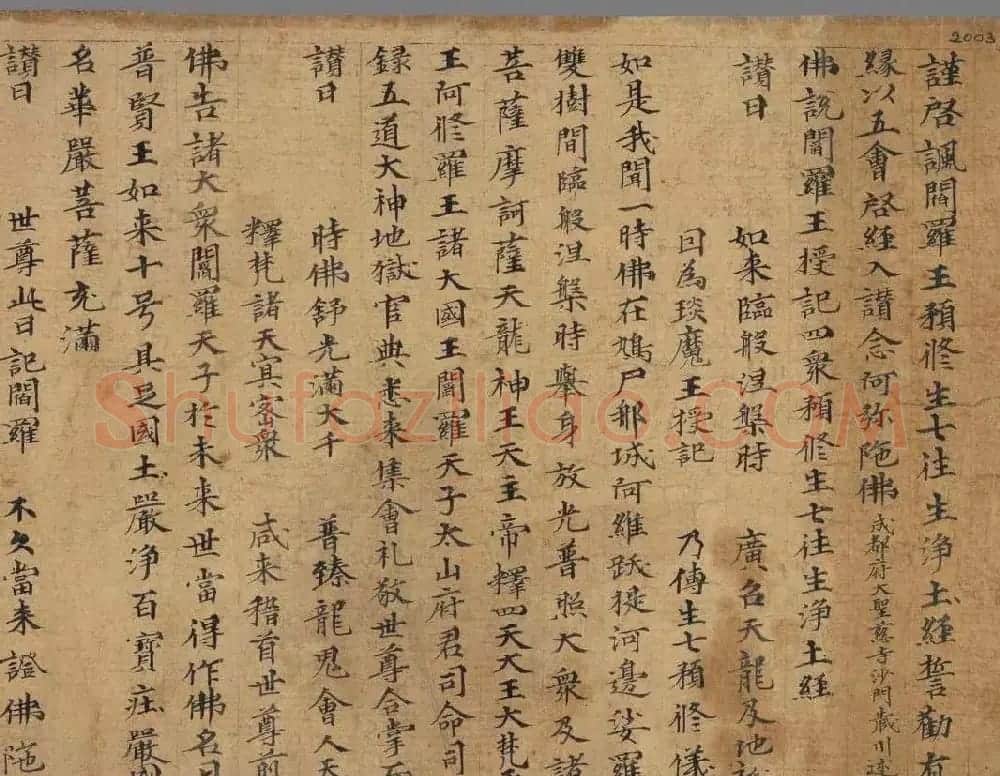 2003
謹啓諷閻羅王預修生七往生淨土經誓勸有
緣以五會啓經入讃念阿弥陁佛 成都府大聖慈寺沙門藏川述
佛說閻羅王授記四衆預修生七往生淨土經
讃曰 如来臨般涅槃時 廣召天龍及地
回為琰魔王授記 乃傳生七預修儀
如是我聞一時佛在鳩尸那城阿維跋提河邊娑羅
雙樹間臨般涅槃時舉身放光普照大衆及諸
菩薩摩訶薩天龍神王天主帝釋四天大王大梵天
王阿修羅王諸大國王閻羅天子太山府君司命司
録五道大神地獄官典悉来集會礼敬世尊合掌而
讃曰 時佛舒光滿大千 普臻龍鬼會人天
釋梵諸天冥密衆 咸来稽首世尊前
佛告諸大衆閻羅天子於未来世當得作佛名曰
普賢王如来十号具足國土嚴淨百寶莊嚴國
名華嚴菩薩充滿
讃曰 世尊此日記閻羅 不久當来證佛陁
Shufaziliao.COM